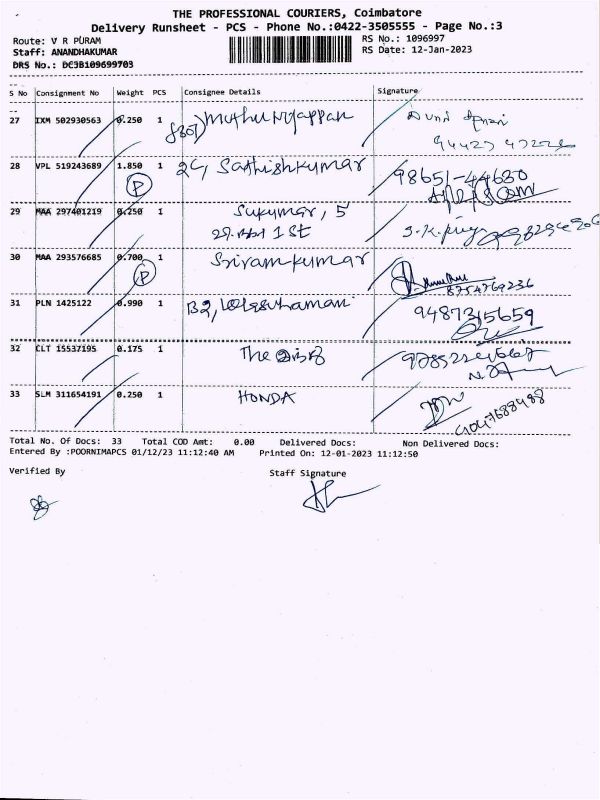 THE PROFESSIONAL COURIERS, Coimbatore
Delivery Runsheet - PCS - Phone No.:0422-3505555 - Page No.:3
Route: V R PURAM
RS No.: 1096997
Staff: ANANDHAKUMAR
RS Date: 12-Jan-2023
DRS No.: DC3B109699703
S No Consignment No Weight PCS Consignee Details Signature
27 IXM 502930563 0.250 1
28 VPL 519243689 1.850 1 Sathishkumar 98651-44680
P
29 MAA 297401219 0.250 1 Sukumar, 5
1 St
30 MAA 293576685 0.700 1 Sriramkumar
P 8754769236
31 PLN 1425122 0.990 1 B2, 9487315659
32 CLT 15537195 0.175 1 The
33 SLM 311654191 0.250 1 HONDA
Total No. Of Docs: 33 Total COD Amt: 0.00 Delivered Docs: Non Delivered Docs:
Entered By :POORNIMAPCS 01/12/23 11:12:40 AM Printed On: 12-01-2023 11:12:50
Verified By Staff Signature